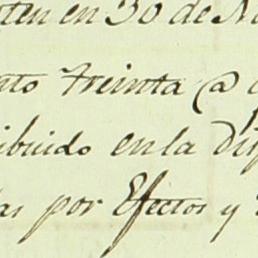 ten en 30 de No
nto treinta @ c
ibuido en la dis
das por Efectos y